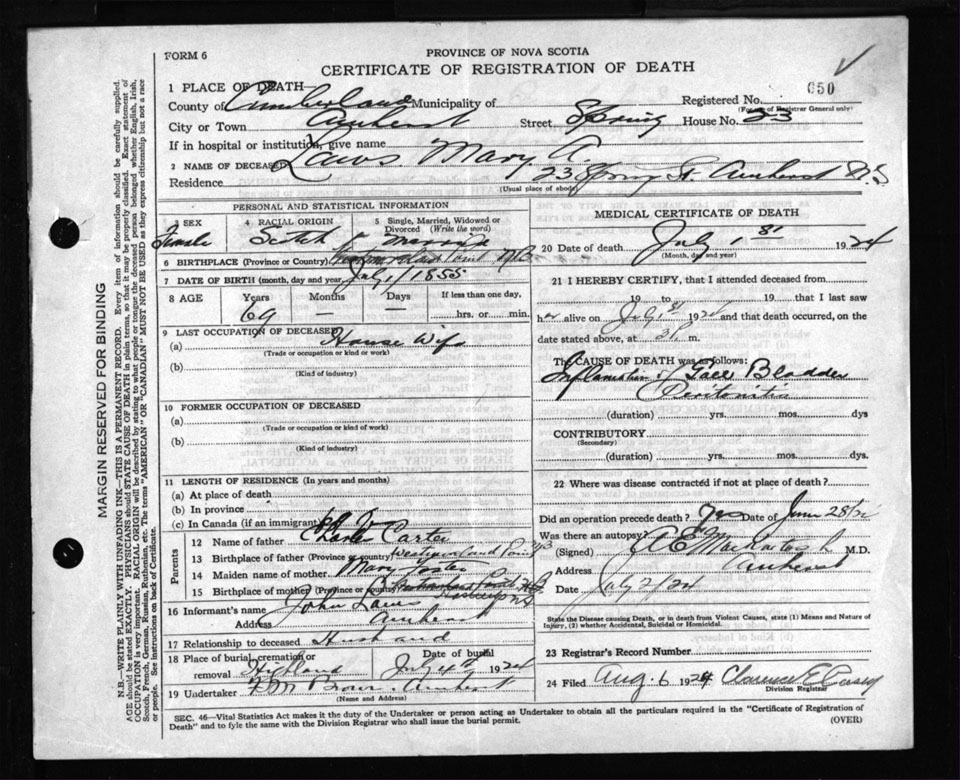 FORM 6
PROVINCE OF NOVA SCOTIA
CERTIFICATE OF REGISTRATION OF DEATH
1 PLACE OF DEATH
County of Cumberland Municipality of Registered No. 050
(For use of Registrar General only)
City or Town Amherst Street Spring House No. 23
If in hospital or institution, give name
2 NAME OF DECEASED Laws Mary A.
Residence 23 Spring St. Amherst N.S
(Usual place of abode)
PERSONAL AND STATISTICAL INFORMATION
3 SEX Female
4 RACIAL ORIGIN Scotch
5 Single, Married, Widowed or Divorced (Write the word) Married
6 BIRTHPLACE (Province or Country) Westmorland Point N.B
7 DATE OF BIRTH (month, day and year) July 1/1855
8 AGE Years 69 Months — Days — If less than one day, hrs. or min.
9 LAST OCCUPATION OF DECEASED
(a) House Wife
(Trade or occupation or kind or work)
(b)
(Kind of industry)
10 FORMER OCCUPATION OF DECEASED
(a)
(Trade or occupation or kind of work)
(b)
(Kind of industry)
11 LENGTH OF RESIDENCE (In years and months)
(a) At place of death
(b) In province
(c) In Canada (if an immigrant)
Parents
12 Name of father Charles Carter
13 Birthplace of father (Province or country) Westmorland Point NB
14 Maiden name of mother Mary
15 Birthplace of mother (Province or country)
16 Informant's name John Laws
Address Amherst
17 Relationship to deceased Husband
18 Place of burial, cremation or removal Highland Date of burial July 4th 1924
19 Undertaker Amherst
(Name and Address)
MEDICAL CERTIFICATE OF DEATH
20 Date of death July 1st 1924
(Month, day and year)
21 I HEREBY CERTIFY, that I attended deceased from
19 to 19 that I last saw
her alive on July 1st 1924 and that death occurred, on
date stated above, at 3 P. m.
The CAUSE OF DEATH was as follows:
Inflamation of Gall Bladder
Peritonitis
(duration) yrs. mos. dys
CONTRIBUTORY
(Secondary)
(duration) yrs. mos. dys.
22 Where was disease contracted if not at place of death?
Did an operation precede death? Yes Date of June 28/24
Was there an autopsy?
(Signed) M.D.
Address Amherst
Date July 2/24
State the Disease causing Death, or in death from Violent Causes, state (1) Means and Nature of Injury, (2) whether Accidental, Suicidal or Homicidal.
23 Registrar's Record Number
24 Filed Aug. 6 1924 Clarence E Casey
Division Registrar
SEC. 46—Vital Statistics Act makes it the duty of the Undertaker or person acting as Undertaker to obtain all the particulars required in the "Certificate of Registration of
Death" and to fyle the same with the Division Registrar who shall issue the burial permit.
(OVER)
MARGIN RESERVED FOR BINDING
N.B.—WRITE PLAINLY WITH UNFADING INK—THIS IS A PERMANENT RECORD. Every item of information should be carefully supplied.
AGE should be stated EXACTLY. PHYSICIANS should STATE CAUSE OF DEATH in plain terms, so that it may be properly classified. Exact statement of
OCCUPATION is very important. RACIAL ORIGIN will be described by stating to what people or tongue the deceased person belonged whether English, Irish,
Scotch, French, German, Russian, Ruthenian, etc. The terms "AMERICAN" OR "CANADIAN" MUST NOT BE USED as they express citizenship but not a race
or people. See instructions on back of Certificate.